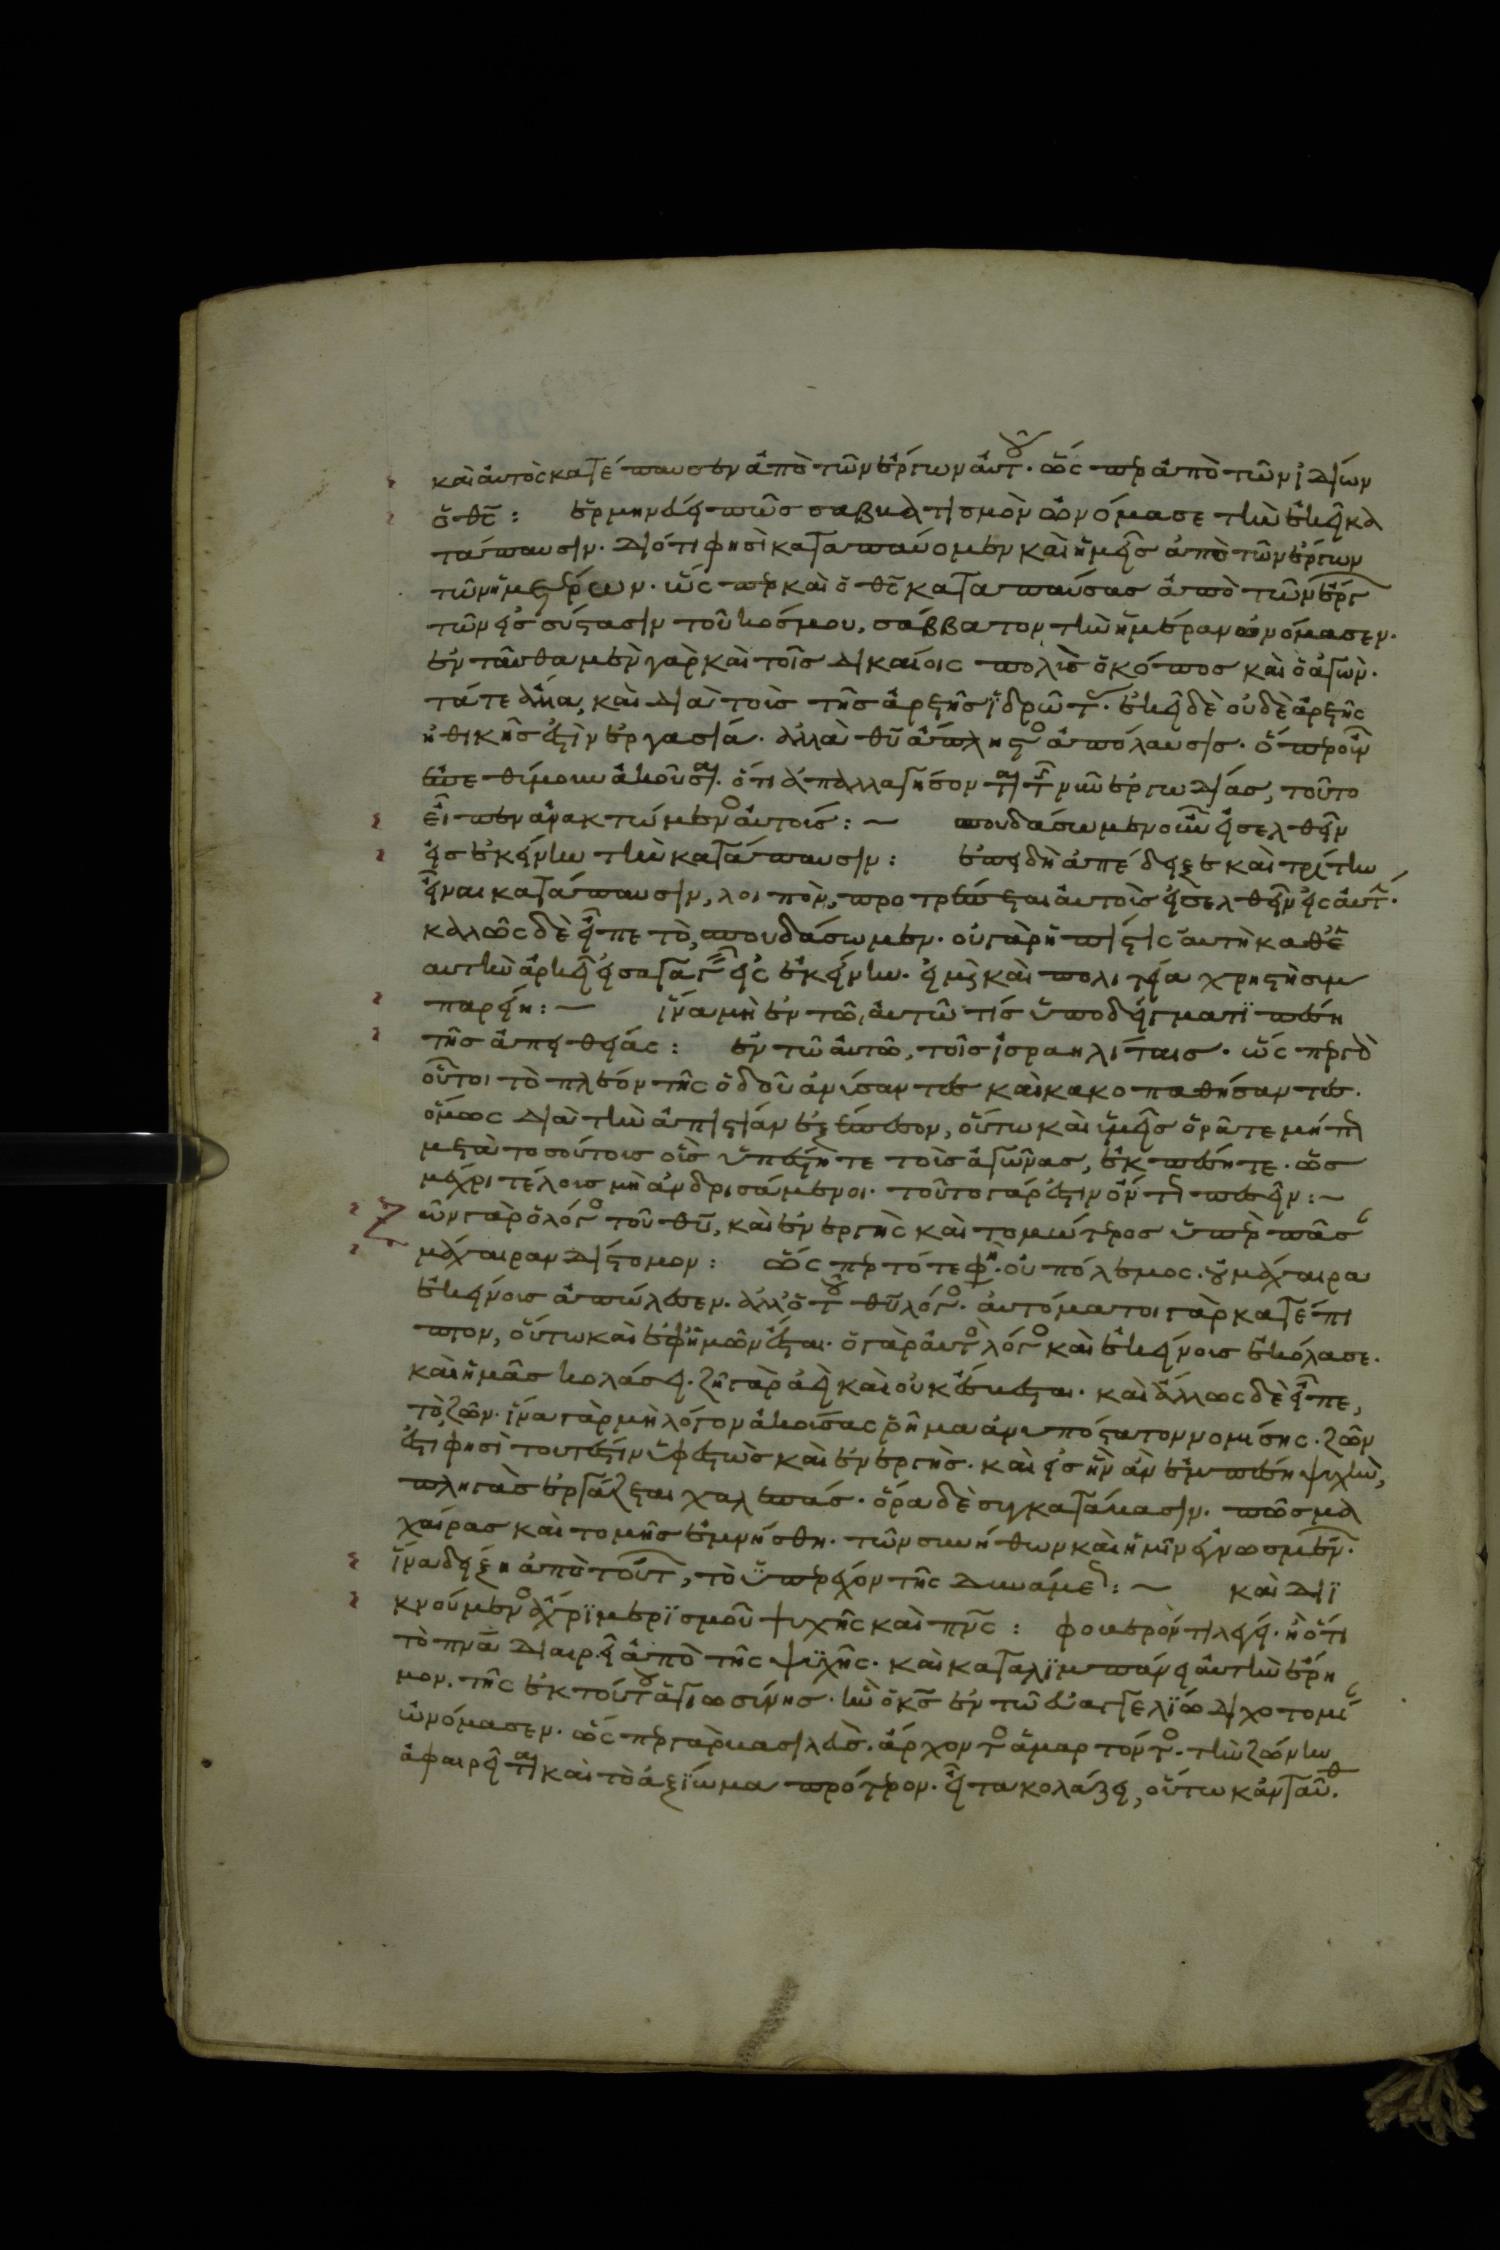 καὶ αὐτὸς κατέπαυσεν ἀπὸ τῶν ἔργων αὐτοῦ. ὥσπερ ἀπὸ τῶν ἰδίων
ὁ θς: ἑρμηνεύει πῶς σαββατισμὸν ὠνόμασε τὴν ἐκεῖ κα
τάπαυσιν. διότι φησὶ καταπαύομεν καὶ ἡμεῖς ἀπὸ τῶν ἔργων
τῶν ἡμετέρων. ὥσπερ καὶ ὁ θς καταπαύσας ἀπὸ τῶν ἔργ
τῶν εἰς σύστασιν τοῦ κόσμου, σάββατον τὴν ἡμέραν ὠνόμασεν.
ἐνταῦθα μὲν γὰρ καὶ τοῖς δικαίοις πολὺς ὁ κόπος καὶ ὁ ἀγών.
καὶ διὰ τοὺς τῆς ἀρετῆς ἱδρῶτ. ἐκεῖ δὲ οὐδὲ ἀρετῆς
ἠθικῆς ἐστὶν ἐργασία. ἀλλὰ θυ ἄπληστος ἀπόλαυσις.
ἀκοῦσαι. ὅτι ἀπαλλαγήσονται τῶν ἐργωδίας, τοῦτο
εἶπεν ἀνακτώμενος αὐτούς: ~ σπουδάσωμεν οὖν εἰσελθεῖν
εἰς ἐκείνην τὴν κατάπαυσιν: ἐπειδὴ ἀπέδειξε καὶ τρίτην
εἶναι κατάπαυσιν, λοιπὸν, προτρέπεται αὐτοὺς εἰσελθεῖν εἰς αὐτ.
καλῶς δὲ εἶπε τὸ, σπουδάσωμεν. οὐ γὰρ ἡ πίστις αὐτὴ καθ ἑ
αυτὴν ἀρκεῖ εἰσαγαγεῖν εἰς ἐκείνην. εἰ μὴ καὶ πολιτεία χρηστὴ συμ
παρείη: ~ ἵνα μὴ ἐν τῶ αὐτῶ τίς ὑποδείγματι πέση
τῆς ἀπειθείας: ἐν τῶ αὐτῶ, τοῖς ἰσραηλίταις. ὥσπερ γὰρ
οὗτοι τὸ πλέον τῆς ὁδοῦ ἀνύσαντες καὶ κακοπαθήσαντες.
ὅμως διὰ τὴν ἀπιστίαν ἐξέπεσον, οὕτω καὶ ὑμεῖς ὁρᾶτε μήπως
μετὰ τοσούτους οὓς ὑπέστητε τοὺς ἀγῶνας, ἐκπέσητε. ὡς
μέχρι τέλους μὴ ἀνδρισάμενοι. τοῦτο γάρ ἐστιν ὄντως πεσεῖν: ~
ζῶν γὰρ ὁ λόγος τοῦ θυ, καὶ ἐνεργὴς καὶ τομώτερος ὑπὲρ πᾶσ
μάχαιραν δίστομον: ὥσπερ τότε φη. οὐ πόλεμος. οὐ μάχαιρα
ἐκείνους ἀπώλεσεν. ἀλλ ὁ τοῦ θυ λόγος. αὐτόματοι γὰρ κατέπι
πτον, οὕτω καὶ ἐφ ἡμῶν ἔσται. ὁ γὰρ αὐτὸς λόγος καὶ ἐκείνους ἐκόλασε.
καὶ ἡμᾶς κολάσει. ζῆ γὰρ ἀεὶ καὶ οὐκ ἔσβεσται. καὶ ἄλλως δὲ εἶπε,
τὸ ζῶν. ἵνα γὰρ μὴ λόγον ἀκούσας ῥῆμα ἀνυπόστατον νομίσης. ζῶν
ἐστι φησὶ τουτέστιν ὑφεστὼς καὶ ἐνεργὴς. καὶ εἰς ἣν ἂν ἐμπέση ψυχὴν,
πληγὰς ἐργάζεται χαλεπάς. ὅρα δὲ συγκατάβασιν. πῶς μα
χαίρας καὶ τομῆς ἐμνήσθη. τῶν συνήθων καὶ ἡμῖν ἐγνωσμέν.
ἵνα δείξη ἀπὸ τούτ, τὸ ὑπερέχον τῆς δυνάμεως: ~ καὶ διϊ
κνούμενος ἄχρϊ μερϊσμοῦ ψυχῆς καὶ πνς: φοβερόν τι λέγει. ἢ ὅτι
τὸ πνα διαιρεῖ ἀπὸ τῆς ψϋχῆς. καὶ καταλϊμπάνει αὐτὴν ἔρη
μον. τῆς ἐκ τούτου ἁγιωσύνης. ἣν ὁ κς ἐν τῶ εὐαγγελϊω διχοτομί
ὠνόμασεν. ὥσπερ γὰρ βασιλεὺς. ἄρχοντος ἁμαρτόντος. τὴν ζώνην
ἀφαιρεῖται καὶ τὸ ἀξϊωμα πρότερον. εἶτα κολάζει, οὕτω κἀνταῦθ.